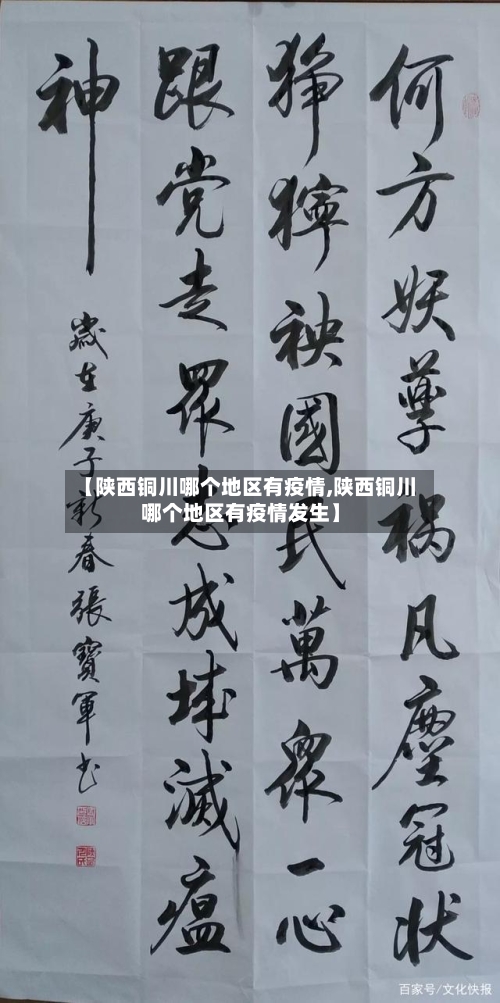 何方妖孽祸凡塵冠状
狰獰袂國民萬衆一心
跟党走眾志成城滅瘟
神
歲在庚子新春張寶軍书
【陕西铜川哪个地区有疫情,陕西铜川
哪个地区有疫情发生】
百家号/文化快报